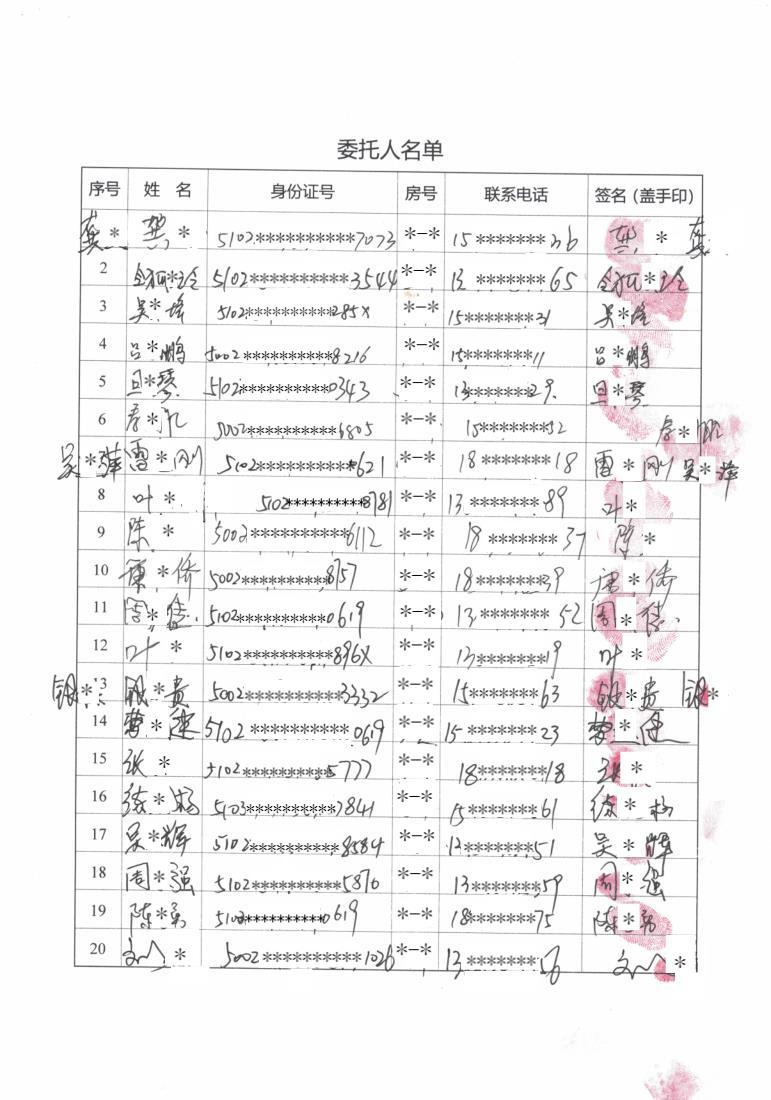 委托人名单
序号 姓 名 身份证号 房号 联系电话 签名（盖手印）
龚* 龚* 5102**********7023 *-* 15*******26 龚* 龚
2 5102**********3544 *-* 13*******65
3 吴* 5102**********285X *-* 15*******21 吴*
4 吕*鹏 5002**********8216 *-* 15*******11 吕*鹏
5 *琴 5102**********0343 *-* 13*******29 *琴
6 李* 5002**********6805 15*******32 李*
吴*萍 雷*刚 5102***********621 *-* 18*******18 雷*刚 吴*萍
8 叶* 5102**********8781 *-* 13*******89 叶*
9 陈* 5002**********6112 *-* 18*******37 陈*
10 *侨 5002**********8757 *-* 18*******39 *侨
11 周*佳 5102**********0619 *-* 13*******52 周*佳
12 叶* 5102**********896X *-* 13*******19 叶*
13 *贵 5002**********3332 *-* 15*******63 *贵
14 *建 5102**********0619 *-* 15*******23 *建
15 张* 5102**********5777 *-* 18*******18 张*
16 *杨 5103**********2841 *-* 15*******61 *杨
17 吴*辉 5102**********8584 *-* 13*******51 吴*辉
18 周*强 5102**********5876 *-* 13*******59 周*强
19 陈*勇 5102**********0619 *-* 18*******75 陈*勇
20 * 5002**********1026 *-* 13*******56 *